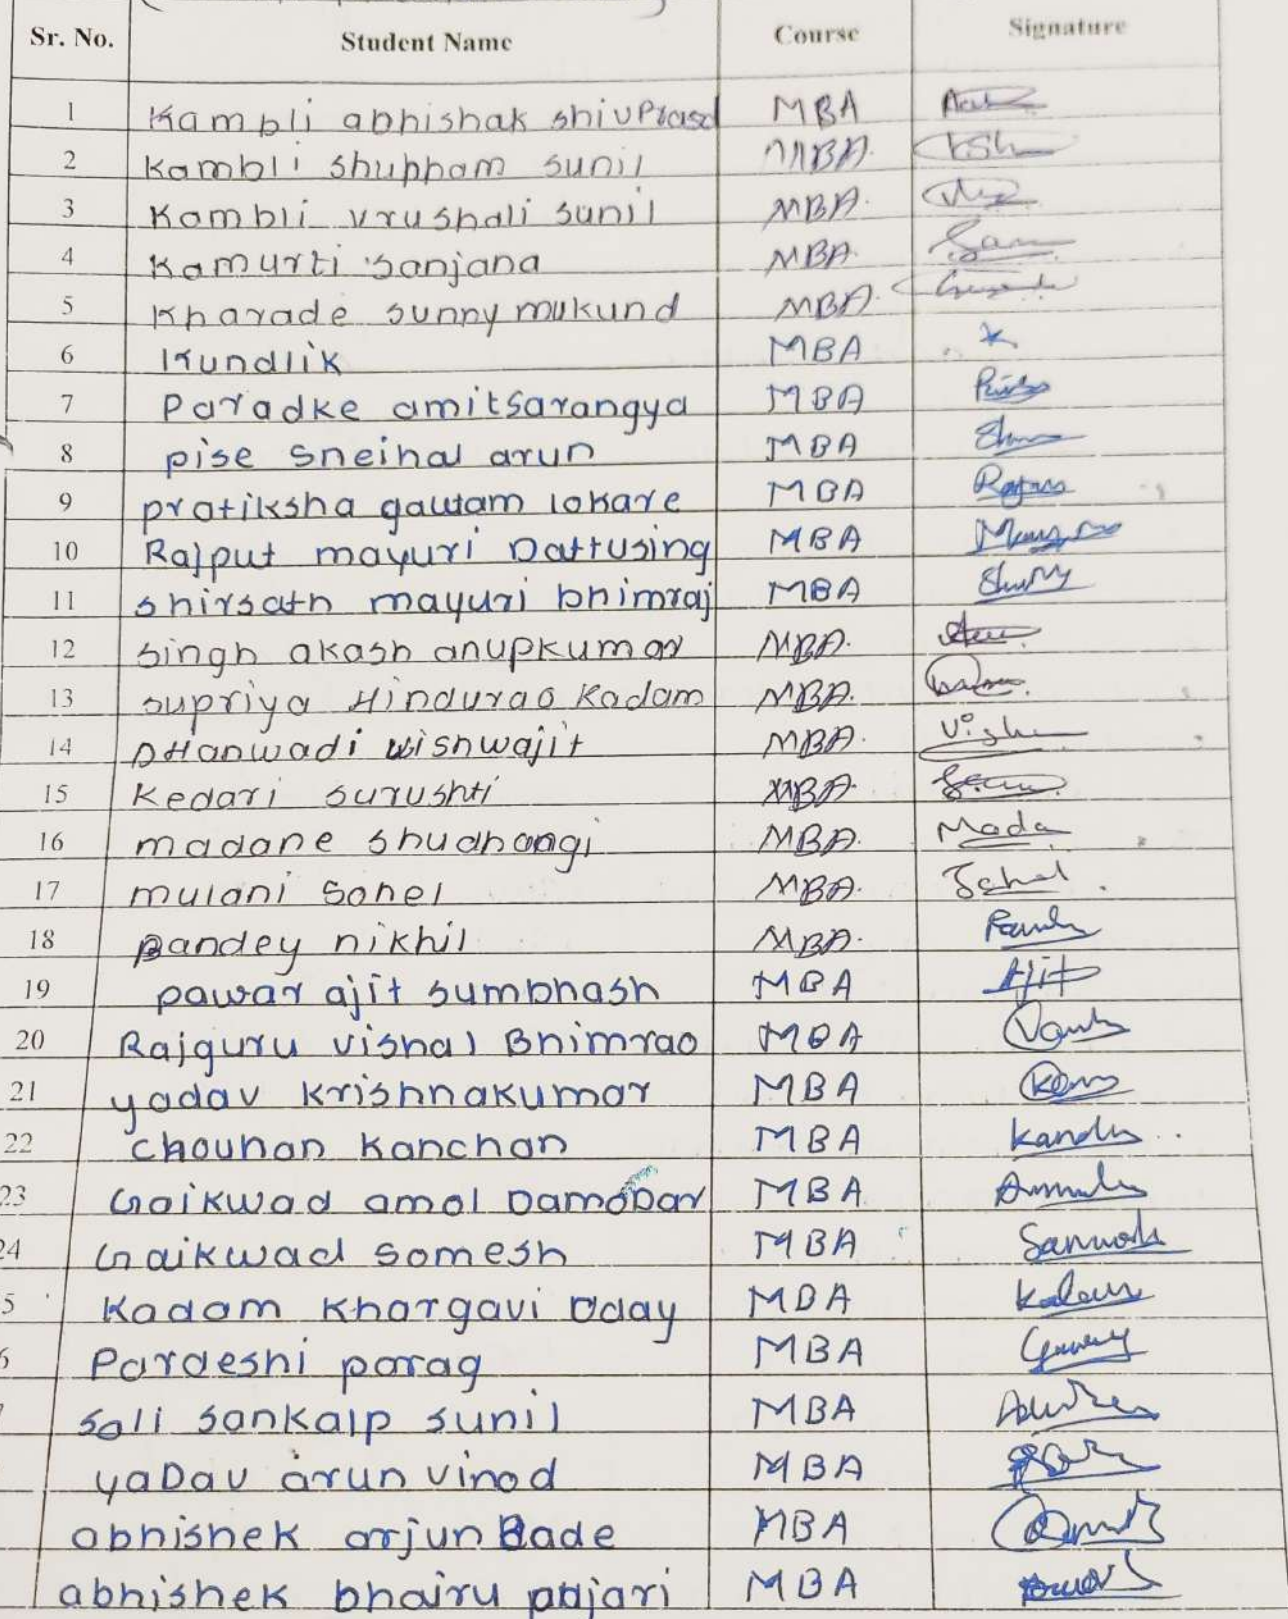 Sr. No. Student Name Course Signature
1 Kambli abhishak shivprasd MBA
2 Kambli shubham sunil MBA.
3 Kambli vrushali sunil MBA.
4 Kamurti sanjana MBA.
5 Kharade sunny mukund MBA.
6 Kundlik MBA
7 Paradke amitsarangya MBA
8 pise sneihal arun MBA
9 pratiksha gautam lokare MBA
10 Rajput mayuri Dattusing MBA
11 shirsath mayuri bhimraj MBA
12 singh akash anupkumar MBA.
13 supriya Hindurao Kadam MBA.
14 DHanwadi wishwajit MBA.
15 Kedari surushti MBA.
16 madane shudhangi MBA. Mada
17 mulani sohel MBA.
18 pandey nikhil MBA.
19 pawar ajit sumbhash MBA Ajit
20 Rajguru vishal Bhimrao MBA
21 yadav krishnakumar MBA
22 chouhan kanchan MBA
23 Gaikwad amol DamoDar MBA
24 Gaikwad somesh MBA
5 Kadam Khargavi Uday MBA
Pardeshi parag MBA
sali sankalp sunil MBA
yaDav arun vinod MBA
abhishek arjun Bade MBA
abhishek bhairu pujari MBA